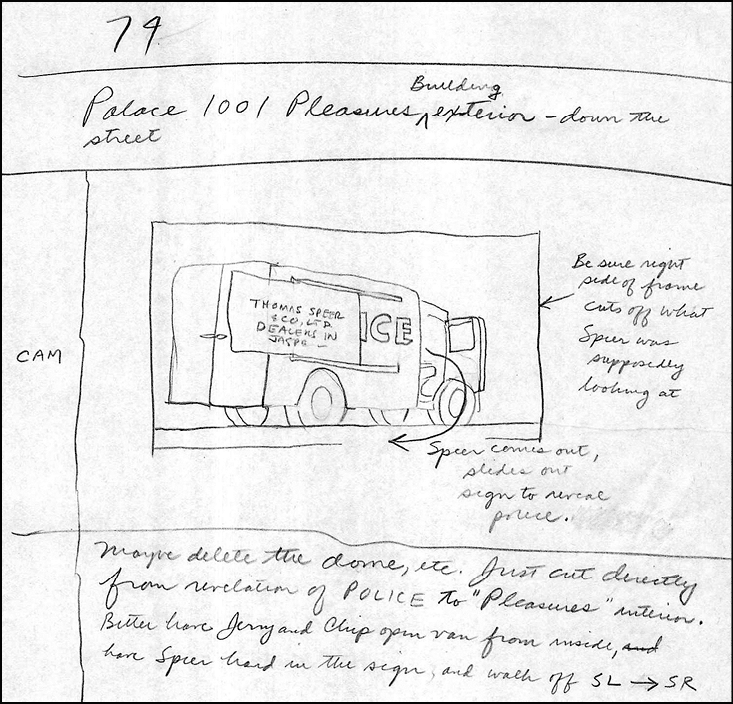 74
Building
Palace 1001 Pleasures, exterior - down the
street
CAM
THOMAS SPEER
& CO, LTD.
DEALERS IN
JASPE—
ICE
Be sure right
side of frame
cuts off what
Speer was
supposedly
looking at
Speer comes out,
slides out
sign to reveal
police.
Maybe delete the dome, etc. Just cut directly
from revelation of POLICE to "Pleasures" interior.
Better have Jerry and Chip open van from inside, and
have Speer hand in the sign, and walk off SL → SR